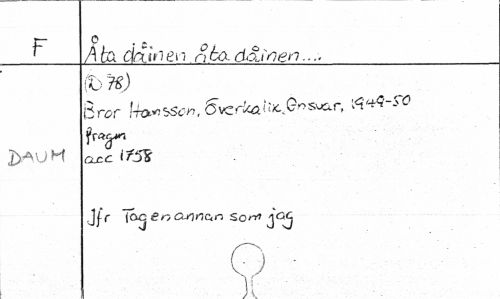 F
Åta dåinen åta dåinen....
(D 78)
Bror Hansson, Överkalix, Gnsvar, 1949-50
Fragm
DAUM
acc 1758
Jfr Tag en annan som jag